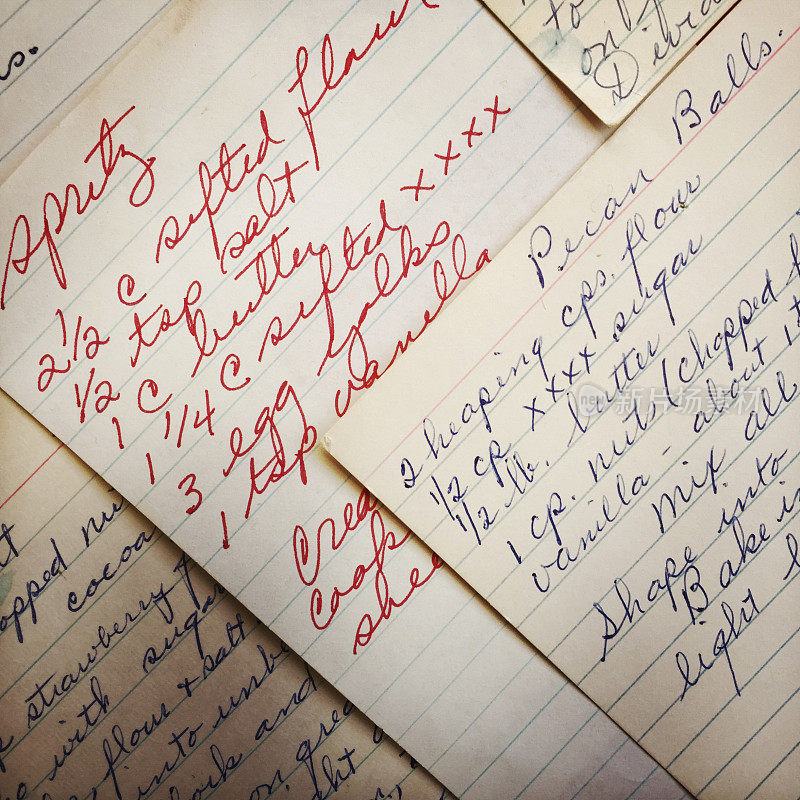 Spritz
2 1/2 c sifted flour
1/2 tsp salt
1 c butter
1 1/4 c sifted xxxx
3 egg yolks
1 tsp vanilla
Crea
cook
shee
Pecan Balls.
2 heaping cps. flour
1/2 cp. xxxx sugar
1/2 lb. butter
1 cp. nuts (chopped
vanilla - about 1t
Mix all
Shape into
Bake in
light
to
only
Divid
ns.
opped nu
cocoa
strawberry
with sugar
flour + salt
into unb
ork and
on grea
ht
新片场素材